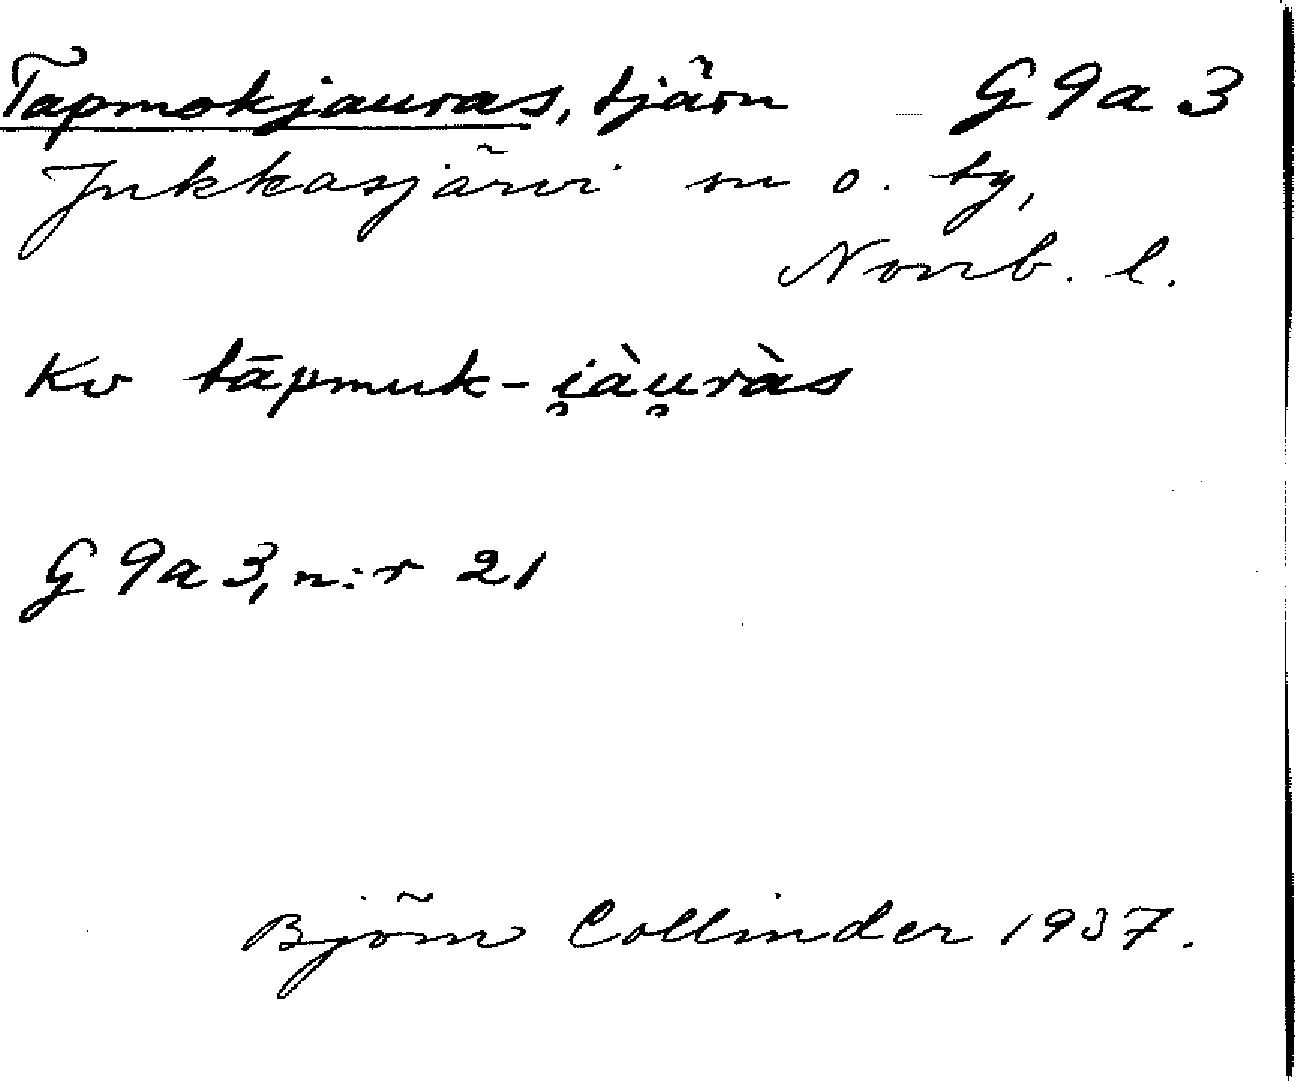 Tapmokjauras, tjärn G 9 a 3
Jukkasjärvi sn o. by,
Norrb. l.
Kv tāpmuk-i̯àu̯ràs
G 9 a 3, n:r 21
Björn Collinder 1937.